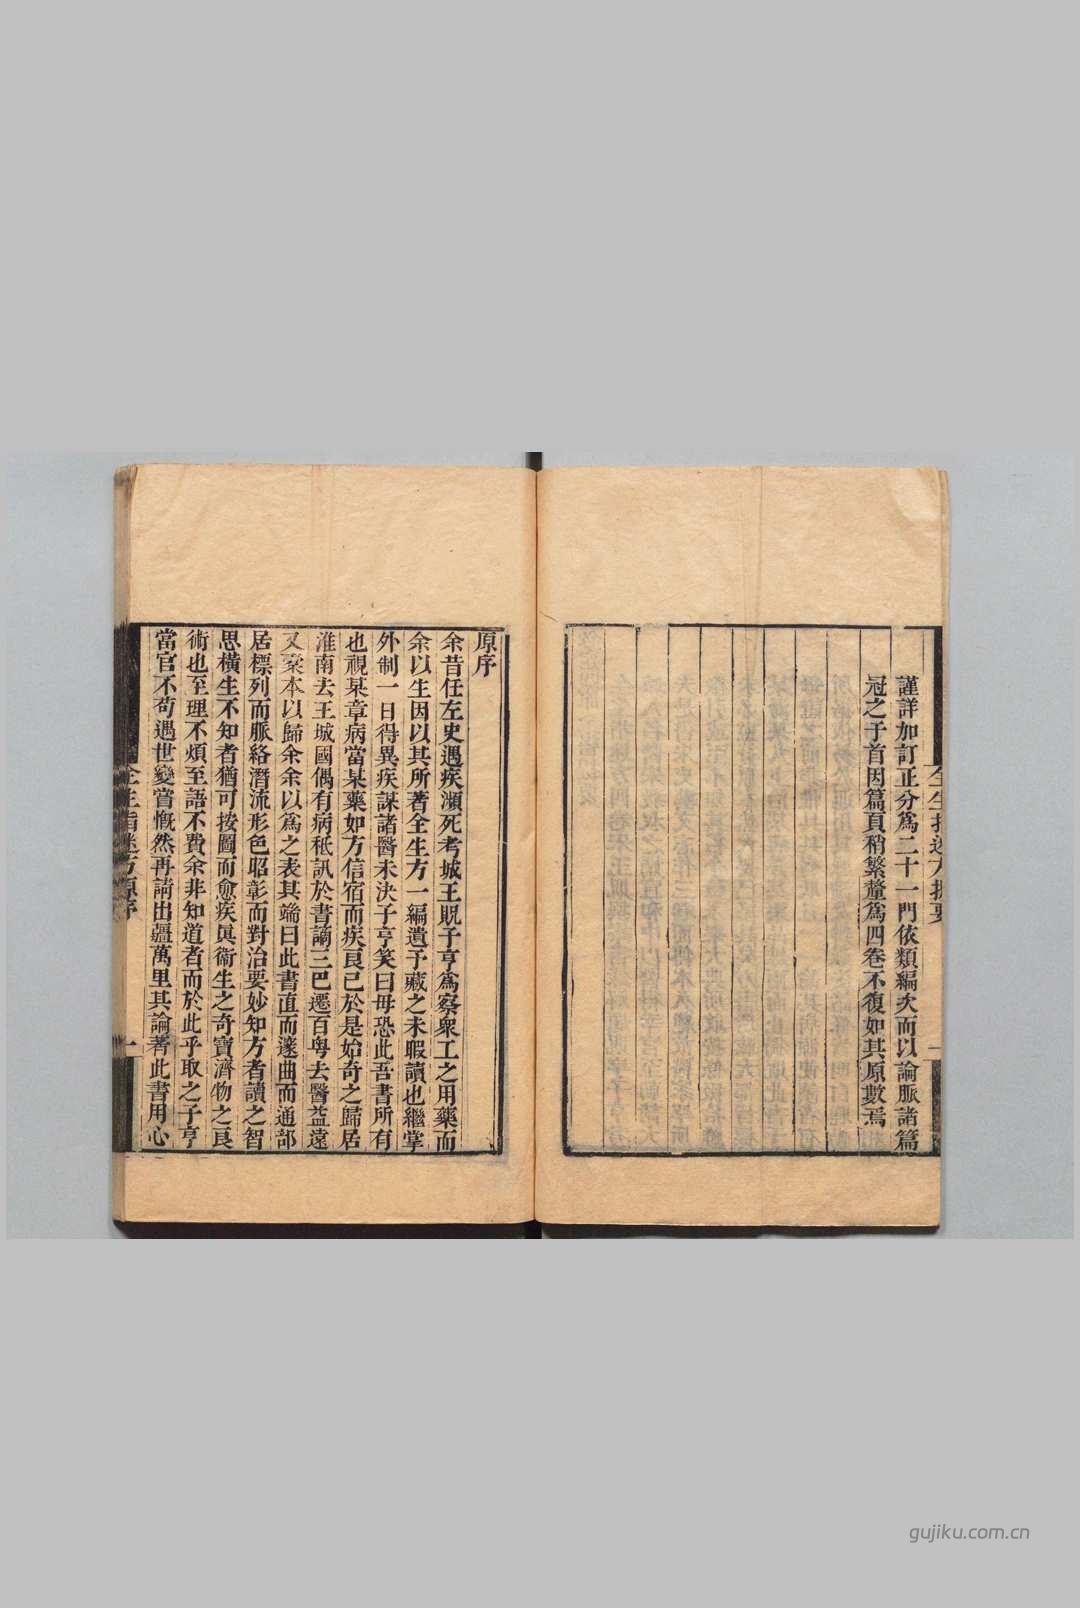 謹詳加訂正分爲二十一門依類編次而以論脈諸篇
冠之于首因篇頁稍繁釐爲四卷不復如其原數焉
全生指迷方提要
一
原序
余昔任左史遇疾瀕死考城王貺子亨爲察衆工之用藥而
余以生因以其所著全生方一編遺予藏之未暇讀也繼掌
外制一日得異疾謀諸醫未決子亨笑曰毋恐此吾書所有
也視某章病當某藥如方信宿而疾良已於是始奇之歸居
淮南去王城國偶有病秪訊於書謫三巴遷百粤去醫益遠
又櫜本以歸余余以爲之表其端曰此書直而邃曲而通部
居標列而脈絡潛流形色昭彰而對治要妙知方者讀之智
思橫生不知者猶可按圖而愈疾眞衞生之奇寶濟物之良
術也至理不煩至語不費余非知道者而於此乎取之子亨
當官不苟遇世變嘗慨然再請出疆萬里其論著此書用心
全生指迷方原序
一
gujiku.com.cn